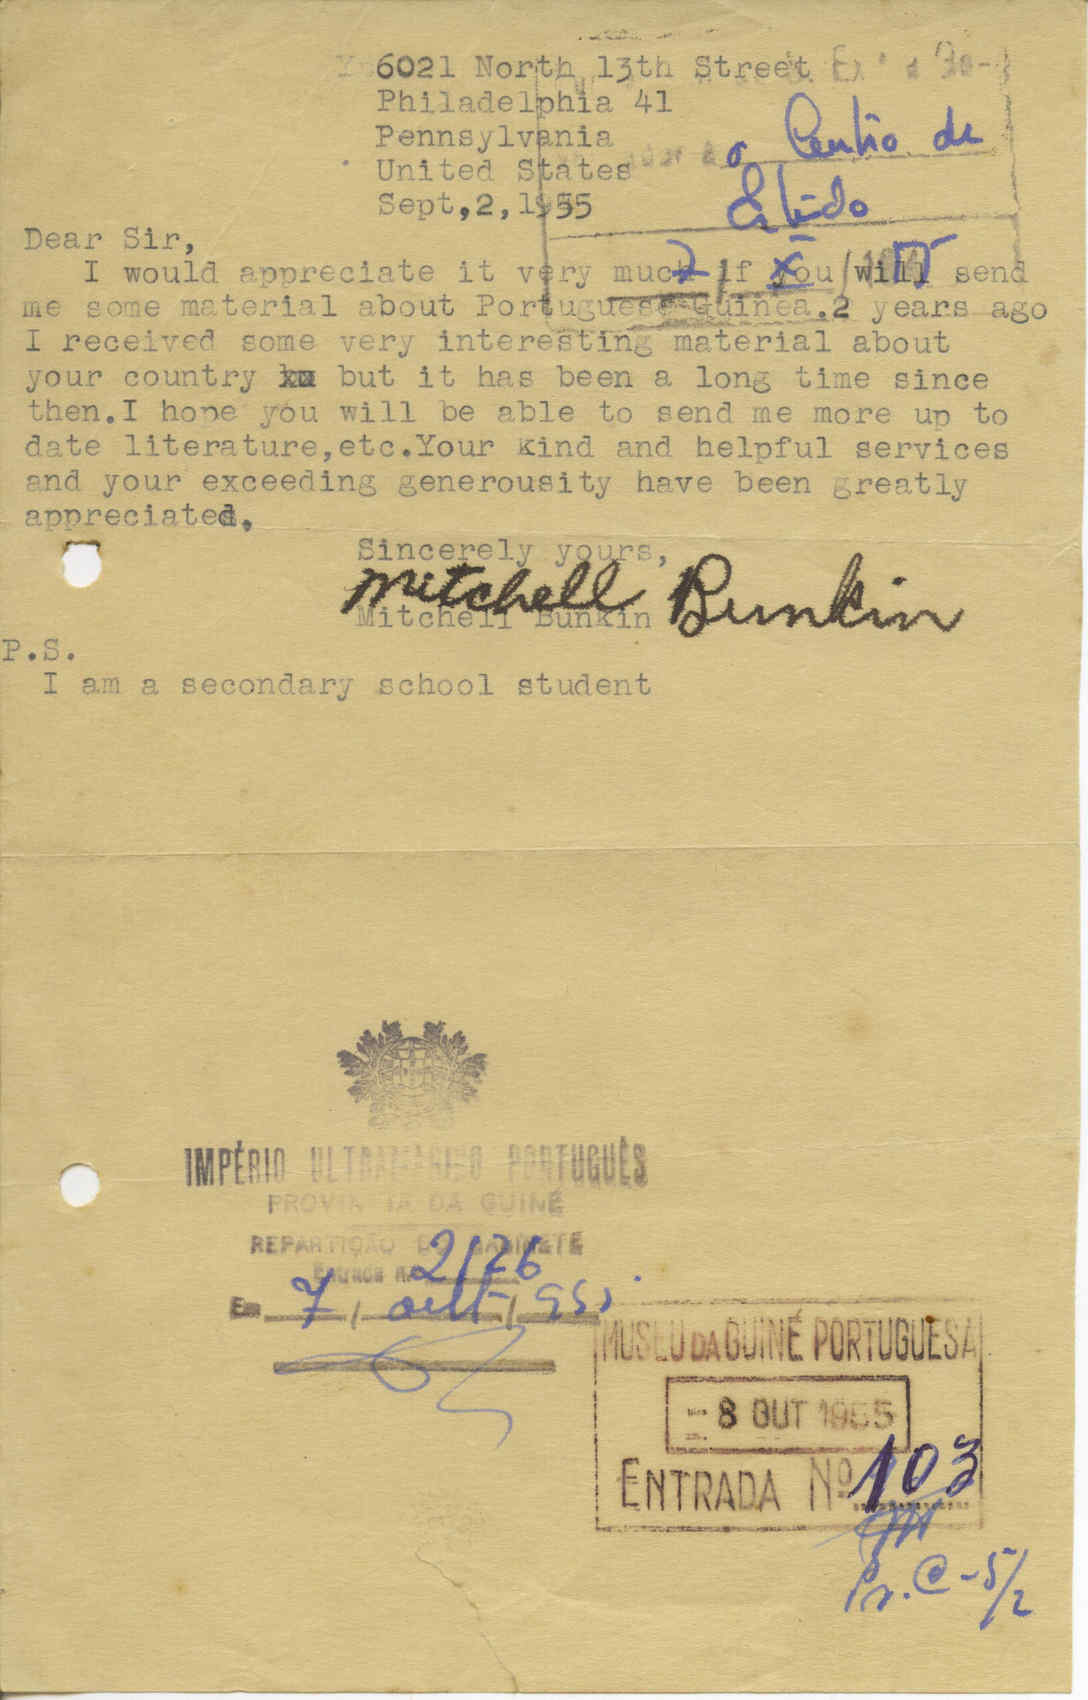 6021 North 13th Street
Philadelphia 41
Pennsylvania
United States
Sept,2,1955
o Centro de
Estudo
7 / X / 55
Dear Sir,
I would appreciate it very much if you will send
me some material about Portuguese Guinea.2 years ago
I received some very interesting material about
your country but it has been a long time since
then.I hope you will be able to send me more up to
date literature,etc.Your kind and helpful services
and your exceeding generousity have been greatly
appreciated.
Sincerely yours,
Mitchell Bunkin
Mitchell Bunkin
P.S.
I am a secondary school student
IMPÉRIO ULTRAMARINO PORTUGUÊS
PROVINCIA DA GUINÉ
REPARTIÇÃO DO GABINETE
Entrada n.º 2176
Em 7 / out / 955
MUSEU DA GUINÉ PORTUGUESA
-8 OUT 1955
ENTRADA Nº 103
Pr. C-5/2